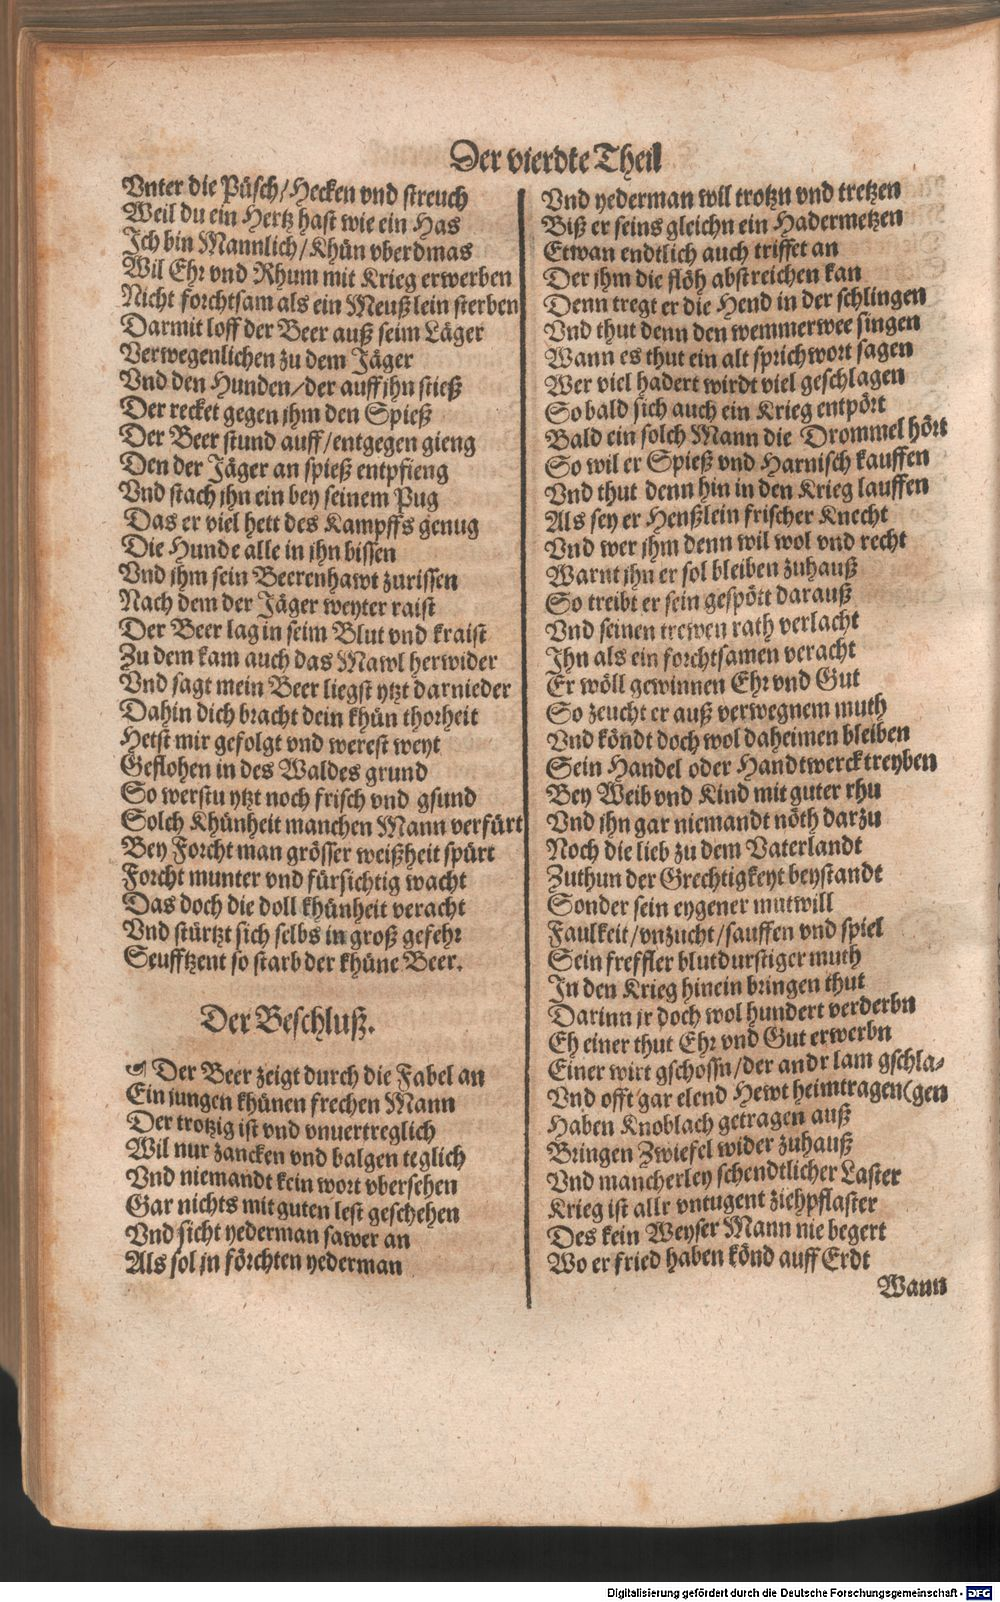 Der vierdte Theil
Vnter die Püsch/Hecken vnd streuch
Weil du ein Hertz hast wie ein Has
Ich bin Mannlich/Khün vberdmas
Wil Ehr vnd Rhum mit Krieg erwerben
Nicht forchtsam als ein Meußlein sterben
Darmit loff der Beer auß seim Läger
Verwegenlichen zu dem Jäger
Vnd den Hunden/der auff jhn stieß
Der recket gegen jhm den Spieß
Der Beer stund auff/entgegen gieng
Den der Jäger an spieß entpfieng
Vnd stach jhn ein bey seinem Pug
Das er viel hett des Kampffs genug
Die Hunde alle in jhn bissen
Vnd jhm sein Beerenhawt zurissen
Nach dem der Jäger weyter raist
Der Beer lag in seim Blut vnd kraist
Zu dem kam auch das Mawl herwider
Vnd sagt mein Beer liegst ytzt darnieder
Dahin dich bracht dein khün thorheit
Hetst mir gefolgt vnd werest weyt
Geflohen in des Waldes grund
So werstu ytzt noch frisch vnd gsund
Solch Khünheit manchen Mann verfürt
Bey Forcht man grösser weißheit spürt
Forcht munter vnd fürsichtig wacht
Das doch die doll khünheit veracht
Vnd stürtzt sich selbs in groß gefehr
Seufftzent so starb der khüne Beer.
Der Beschluß.
☙ Der Beer zeigt durch die Fabel an
Ein jungen khünen frechen Mann
Der trotzig ist vnd vnuertreglich
Wil nur zancken vnd balgen teglich
Vnd niemandt kein wort vbersehen
Gar nichts mit guten lest geschehen
Vnd sicht yederman sawer an
Als sol jn förchten yederman
Vnd yederman wil trotzn vnd tretzen
Biß er seins gleichn ein Hadermetzen
Etwan endtlich auch triffet an
Der jhm die flöh abstreichen kan
Denn tregt er die Hend in der schlingen
Vnd thut denn den wemmerwee singen
Wann es thut ein alt sprichwort sagen
Wer viel hadert wirdt viel geschlagen
So bald sich auch ein Krieg entpört
Bald ein solch Mann die Drommel hört
So wil er Spieß vnd Harnisch kauffen
Vnd thut denn hin in den Krieg lauffen
Als sey er Henßlein frischer Knecht
Vnd wer jhm denn wil wol vnd recht
Warnt jhn er sol bleiben zuhauß
So treibt er sein gespött darauß
Vnd seinen trewen rath verlacht
Ihn als ein forchtsamen veracht
Er wöll gewinnen Ehr vnd Gut
So zeucht er auß verwegnem muth
Vnd köndt doch wol daheimen bleiben
Sein Handel oder Handtwerck treyben
Bey Weib vnd Kind mit guter rhu
Vnd jhn gar niemandt nöth darzu
Noch die lieb zu dem Vaterlandt
Zuthun der Grechtigkeyt beystandt
Sonder sein eygener mutwill
Faulkeit/vnzucht/sauffen vnd spiel
Sein freffler blutdurstiger muth
In den Krieg hinein bringen thut
Darinn jr doch wol hundert verderbn
Eh einer thut Ehr vnd Gut erwerbn
Einer wirt gschossn/der andr lam gschla-
Vnd offt gar elend Hewt heimtragen(gen
Haben Knoblach getragen auß
Bringen Zwiefel wider zuhauß
Vnd mancherley schendtlicher Laster
Krieg ist allr vntugent ziehpflaster
Des kein Weyser Mann nie begert
Wo er fried haben könd auff Erdt
Wann
Digitalisierung gefördert durch die Deutsche Forschungsgemeinschaft - DFG